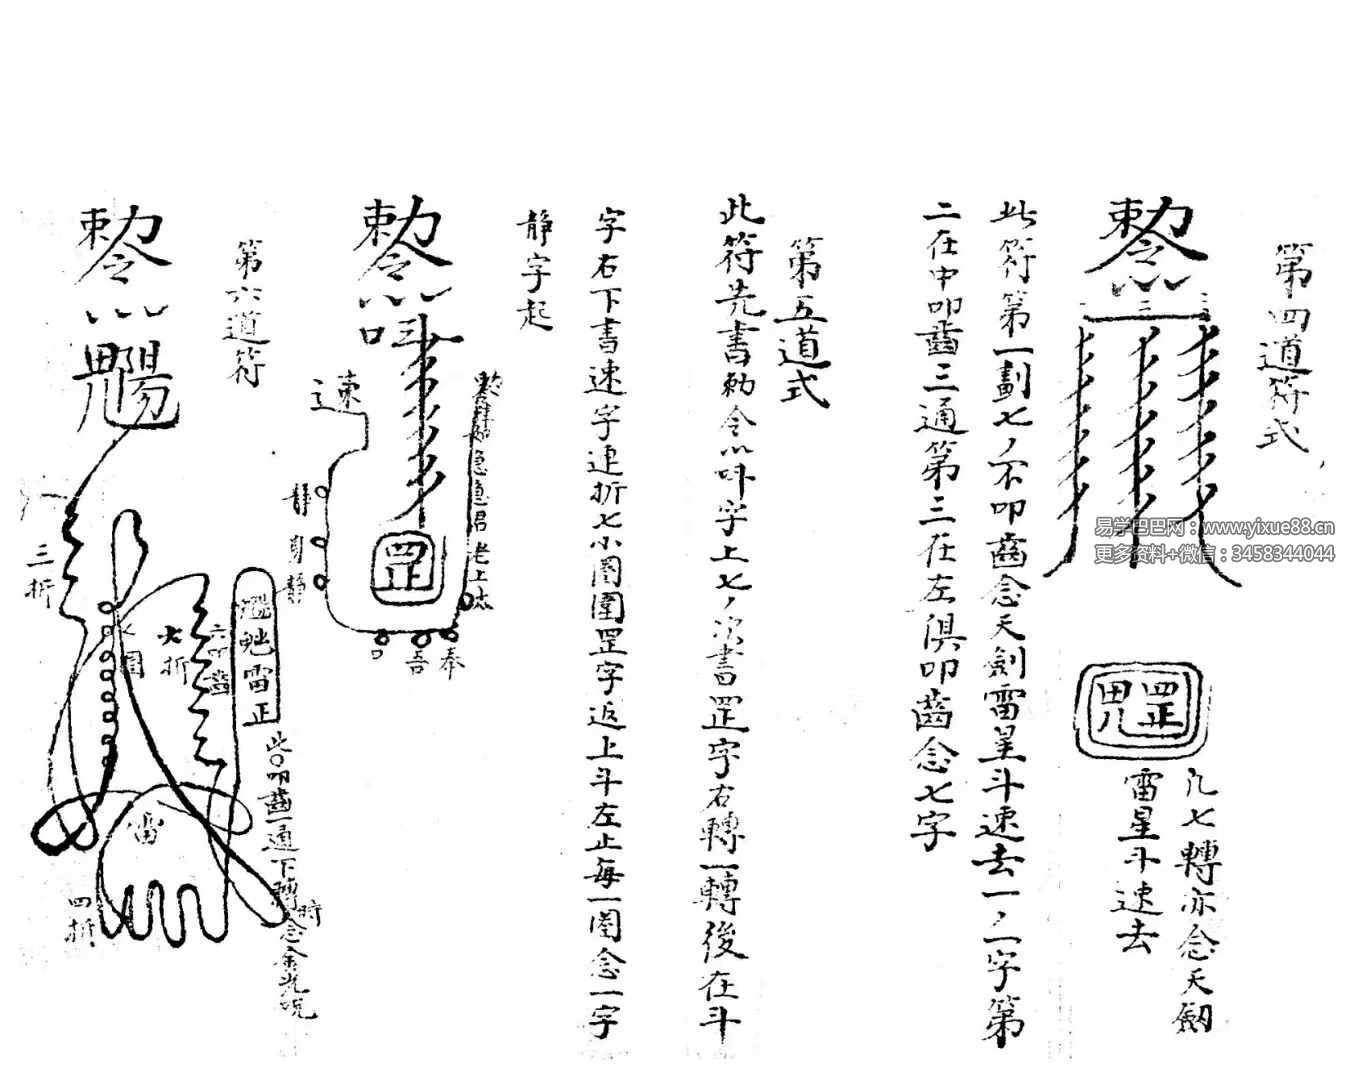 第四道符式
勅令
三 二 一
罡
凡七轉亦念天劒
雷星斗速去
此符第一劃七丿不叩齒念天劍雷星斗速去一丿一字第
二在中叩齒三通第三在左俱叩齒念七字
第五道式
此符先書勅令灬吽字上七丿次書罡字右轉一轉後在斗
字右下書速字連折七小圈圍罡字返上斗左止每一圈念一字
靜字起
勅令
吽
速
急急
君老上太
罡
靜
身
靜
口
吾
奉
第六道符
勅令
三折
七圈
六折
六叩齒
雷正
此〇叩齒一通下轉時念金光咒
雷
四折
易学巴巴网：www.yixue88.cn
更多资料+微信：3458344044